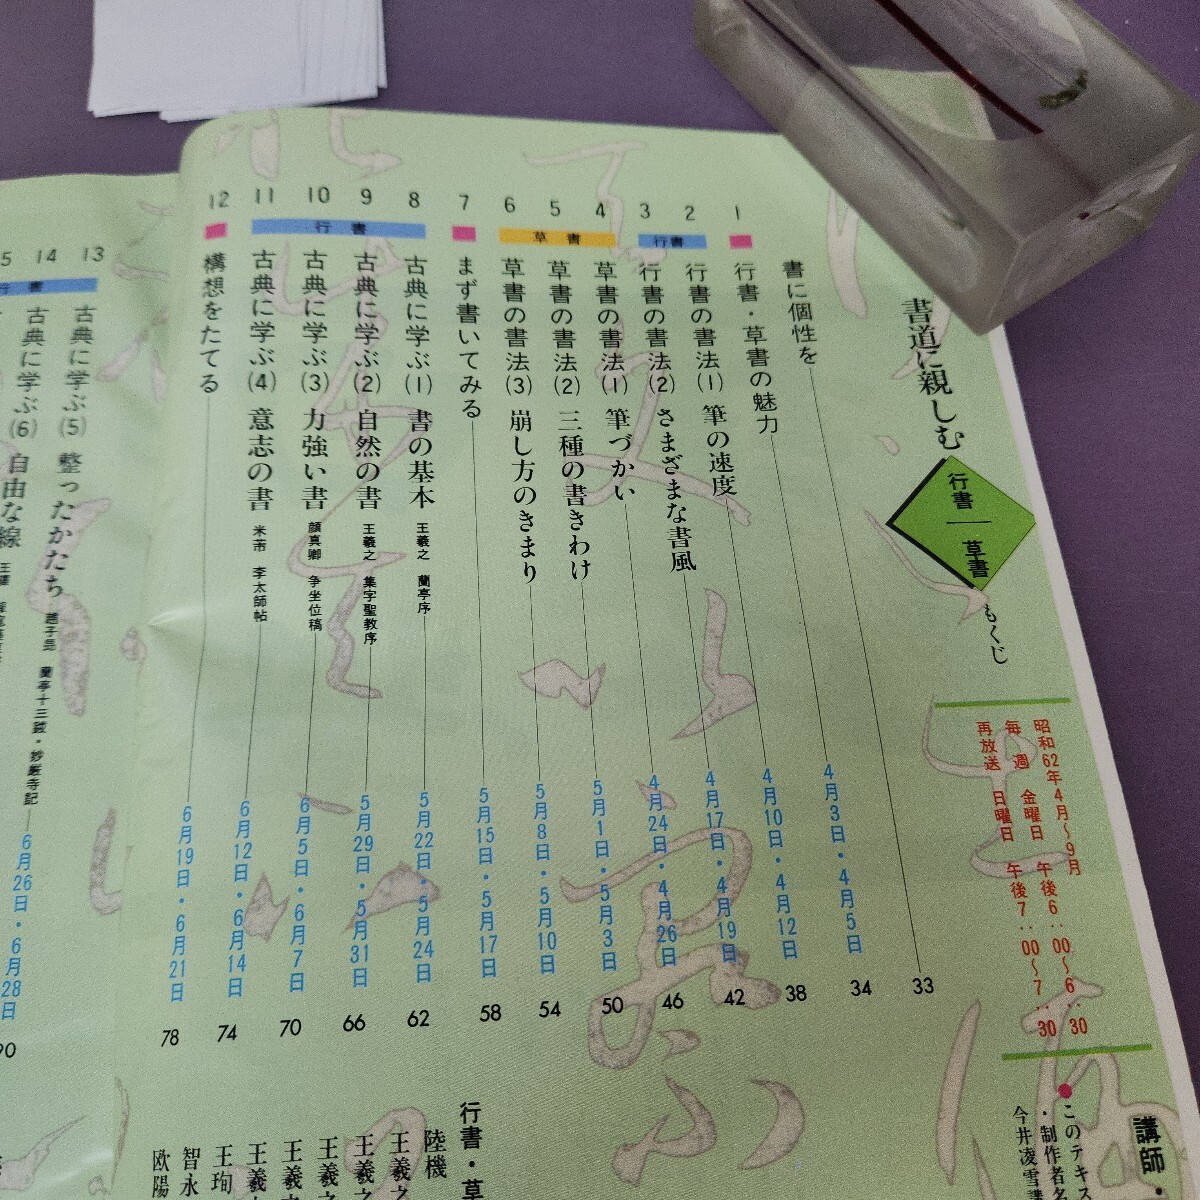 書道に親しむ
行書
草書
もくじ
昭和62年4月〜9月
毎週 金曜日 午後6:00〜6:30
再放送 日曜日 午後7:00〜7:30
書に個性を 33
1 行書・草書の魅力 4月3日・4月5日 34
行書
2 行書の書法(1) 筆の速度 4月10日・4月12日 38
3 行書の書法(2) さまざまな書風 4月17日・4月19日 42
草書
4 草書の書法(1) 筆づかい 4月24日・4月26日 46
5 草書の書法(2) 三種の書きわけ 5月1日・5月3日 50
6 草書の書法(3) 崩し方のきまり 5月8日・5月10日 54
7 まず書いてみる 5月15日・5月17日 58
行書
8 古典に学ぶ(1) 書の基本 王羲之 蘭亭序 5月22日・5月24日 62
9 古典に学ぶ(2) 自然の書 王羲之 集字聖教序 5月29日・5月31日 66
10 古典に学ぶ(3) 力強い書 顔真卿 争坐位稿 6月5日・6月7日 70
11 古典に学ぶ(4) 意志の書 米芾 李太師帖 6月12日・6月14日 74
12 構想をたてる 6月19日・6月21日 78
行書
13 古典に学ぶ(5) 整ったかたち 趙子昂 蘭亭十三跋・妙厳寺記 6月26日・6月28日
14 古典に学ぶ(6) 自由な線
講師・
このテキス
・制作者名
今井凌雪
行書・草
陸機
王羲之
王羲之
王羲之
王羲
王羲
王珣
智永
欧陽